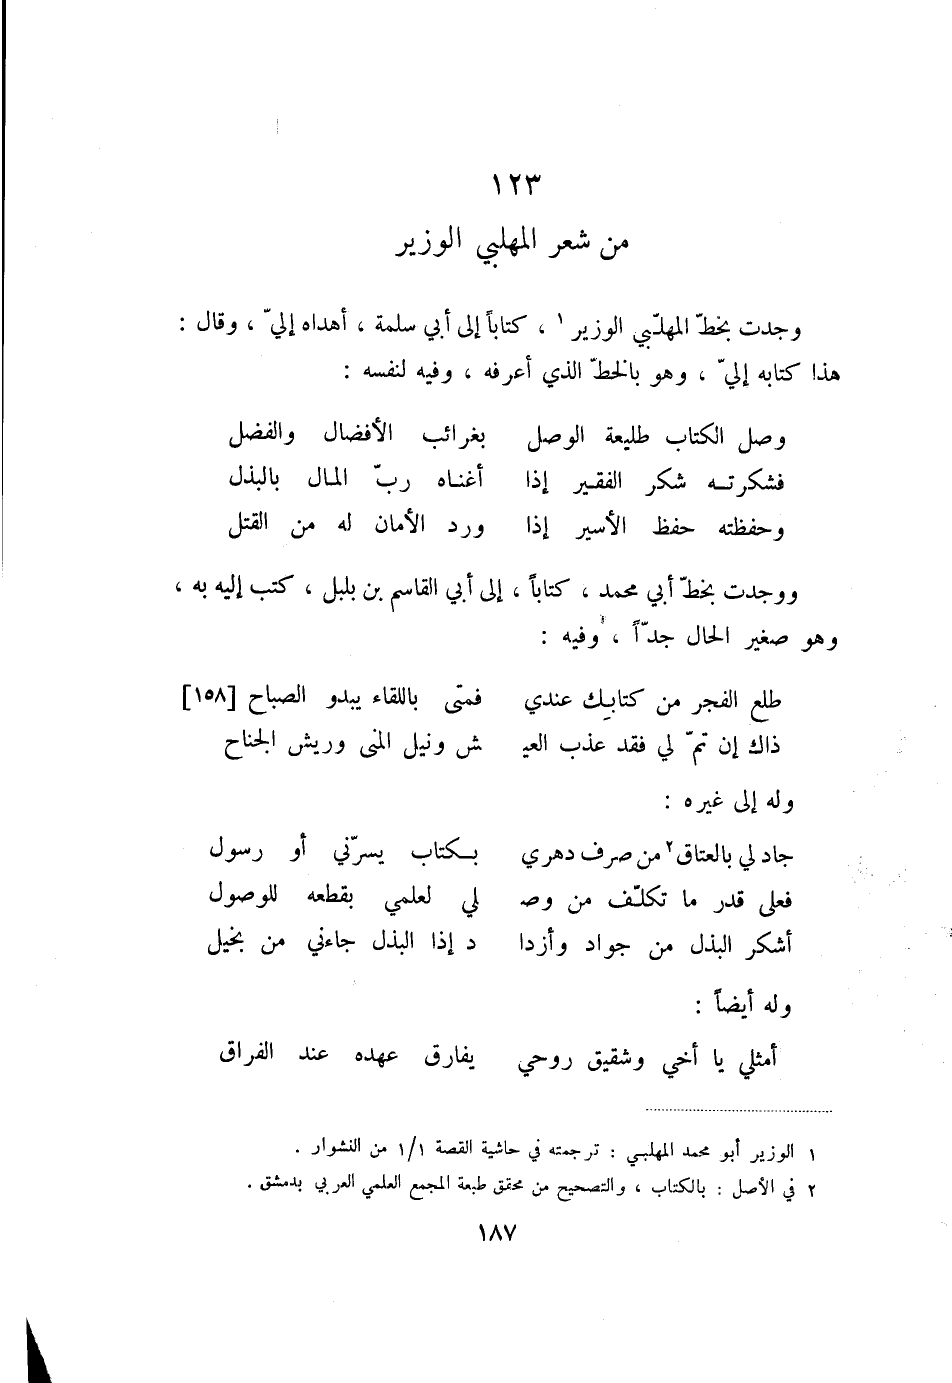 ١٢٣
من شعر المهلبي الوزير
وجدت بخطّ المهلّبي الوزير ١ ، كتاباً إلى أبي سلمة ، أهداه إليّ ، وقال :
هذا كتابه إليّ ، وهو بالخطّ الذي أعرفه ، وفيه لنفسه :
وصل الكتاب طليعة الوصل بغرائب الأفضال والفضل
فشكرتـه شكر الفقـير إذا أغنـاه ربّ المـال بالبذل
وحفظته حفظ الأسير إذا ورد الأمان له من القتل
ووجدت بخطّ أبي محمد ، كتاباً ، إلى أبي القاسم بن بلبل ، كتب إليه به ،
وهو صغير الحال جدّاً ، وفيه :
طلع الفجر من كتابك عندي فمتى باللقاء يبدو الصباح [١٥٨]
ذاك إن تمّ لي فقد عذب العيـ ش ونيل المنى وريش الجناح
وله إلى غيره :
جاد لي بالعتاق ٢ من صرف دهري بكتاب يسرّني أو رسول
فعلى قدر ما تكلّف من وصـ لي لعلمي بقطعه للوصول
أشكر البذل من جواد وأزدا د إذا البذل جاءني من بخيل
وله أيضاً :
أمثلي يا أخي وشقيق روحي يفارق عهده عند الفراق
١ الوزير أبو محمد المهلبـي : ترجمته في حاشية القصة ١/١ من النشوار .
٢ في الأصل : بالكتاب ، والتصحيح من محقق طبعة المجمع العلمي العربي بدمشق .
١٨٧